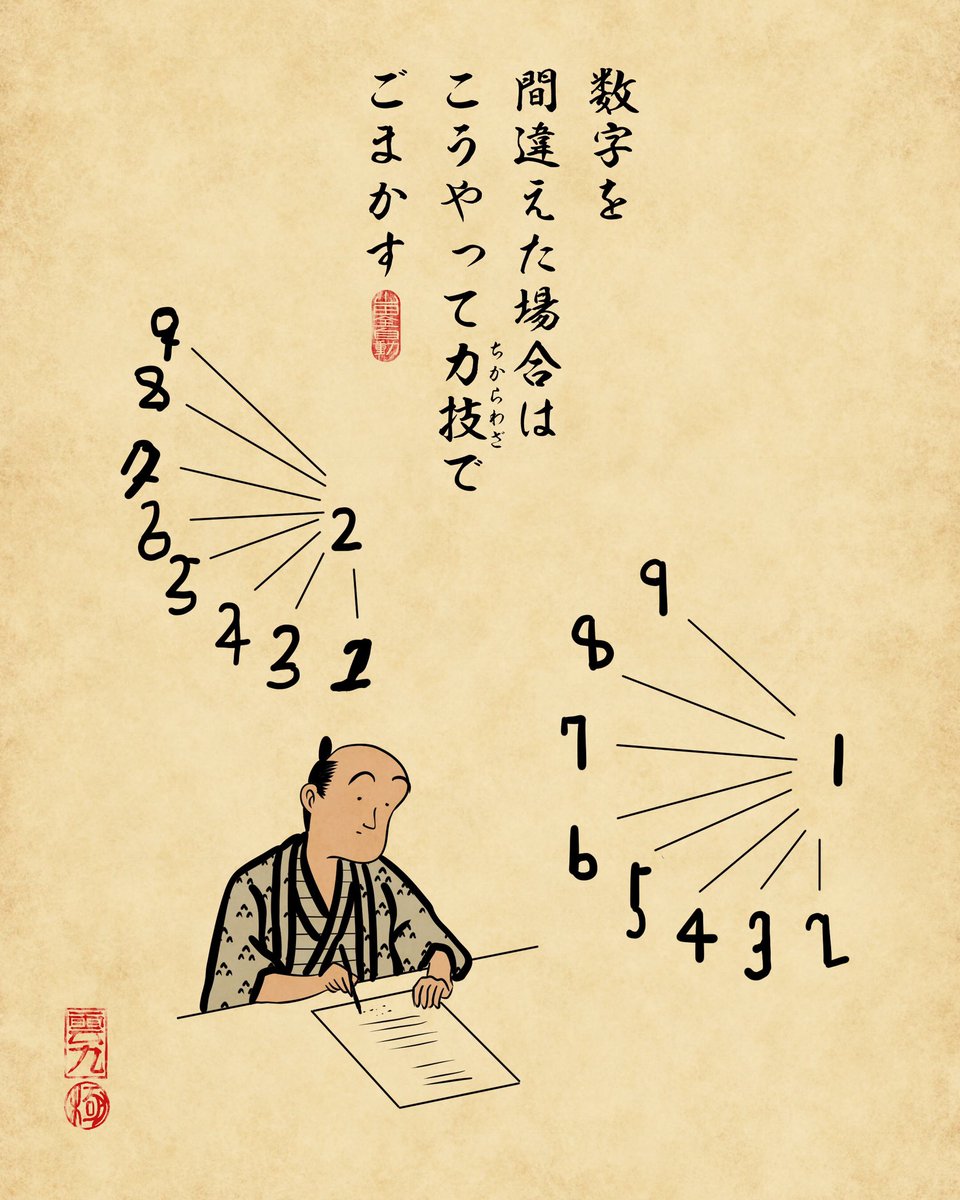 数字を
間違えた場合は
こうやって力技で
ちからわざ
ごまかす
山田全自動
9
8
7
6
5
4
3
1
2
9
8
7
6
5
4
3
2
1